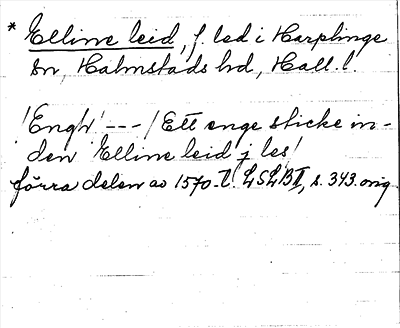 * Elline leid, f. led i Harplinge
sn, Halmstads hd, Hall. l.
'Engh' --- / Ett enge sticke in-
den Elline leid j les'
förra delen av 1570-t. LSLBII, s. 343. orig.